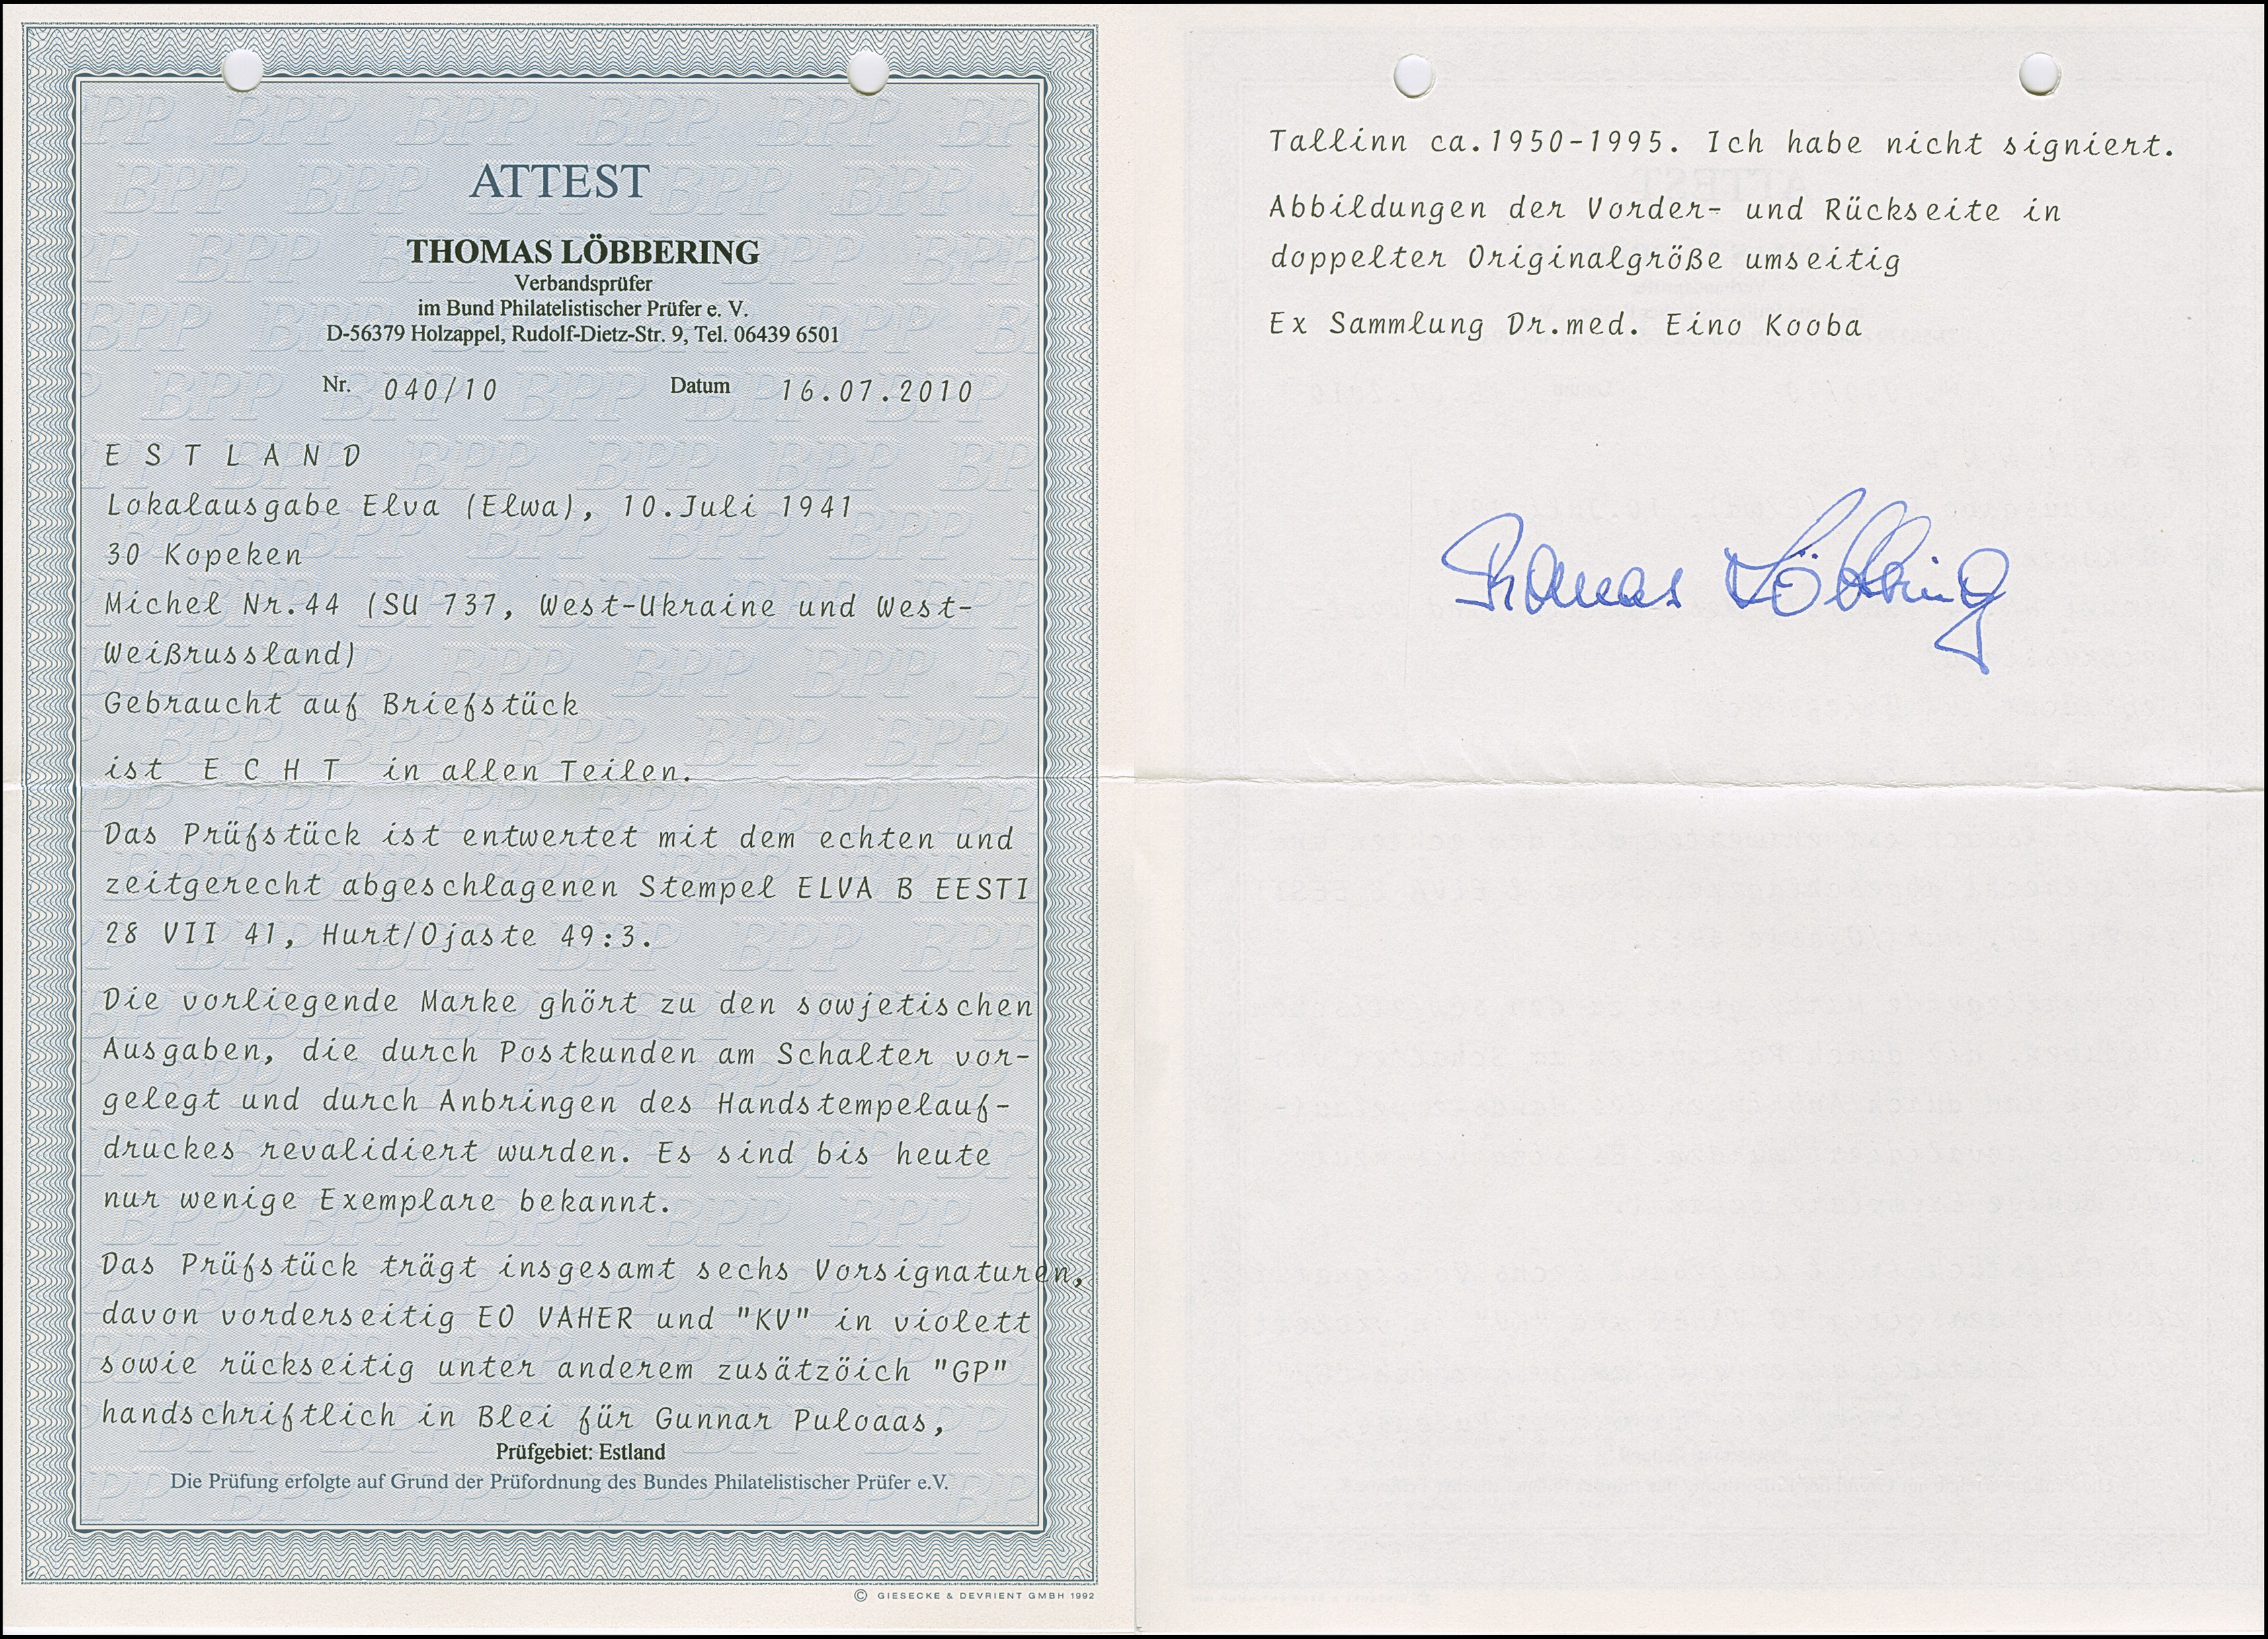 ATTEST
THOMAS LÖBBERING
Verbandsprüfer
im Bund Philatelistischer Prüfer e. V.
D-56379 Holzappel, Rudolf-Dietz-Str. 9, Tel. 06439 6501
Nr. 040/10 Datum 16.07.2010
E S T L A N D
Lokalausgabe Elva (Elwa), 10.Juli 1941
30 Kopeken
Michel Nr.44 (SU 737, West-Ukraine und West-
Weißrussland)
Gebraucht auf Briefstück
ist E C H T in allen Teilen.
Das Prüfstück ist entwertet mit dem echten und
zeitgerecht abgeschlagenen Stempel ELVA B EESTI
28 VII 41, Hurt/Ojaste 49:3.
Die vorliegende Marke ghört zu den sowjetischen
Ausgaben, die durch Postkunden am Schalter vor-
gelegt und durch Anbringen des Handstempelauf-
druckes revalidiert wurden. Es sind bis heute
nur wenige Exemplare bekannt.
Das Prüfstück trägt insgesamt sechs Vorsignaturen,
davon vorderseitig EO VAHER und "KV" in violett
sowie rückseitig unter anderem zusätzöich "GP"
handschriftlich in Blei für Gunnar Puloaas,
Prüfgebiet: Estland
Die Prüfung erfolgte auf Grund der Prüfordnung des Bundes Philatelistischer Prüfer e.V.
© GIESECKE & DEVRIENT GMBH 1992
Tallinn ca.1950-1995. Ich habe nicht signiert.
Abbildungen der Vorder- und Rückseite in
doppelter Originalgröße umseitig
Ex Sammlung Dr.med. Eino Kooba
Thomas Löbbering